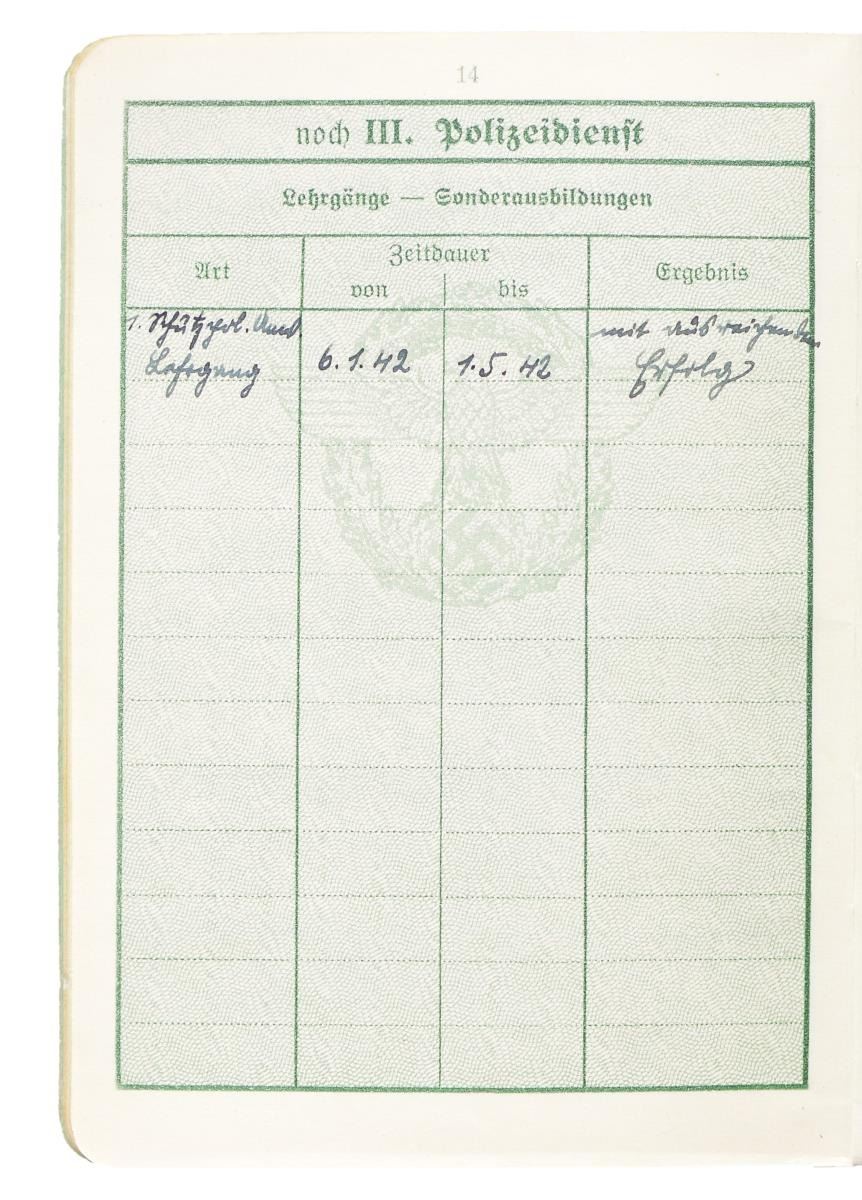 14
noch III. Polizeidienst
Lehrgänge — Sonderausbildungen
Art
Zeitdauer
von
bis
Ergebnis
1. Schutzpol. Anw.
Lehrgang
6. 1. 42
1. 5. 42
mit ausreichendem
Erfolg